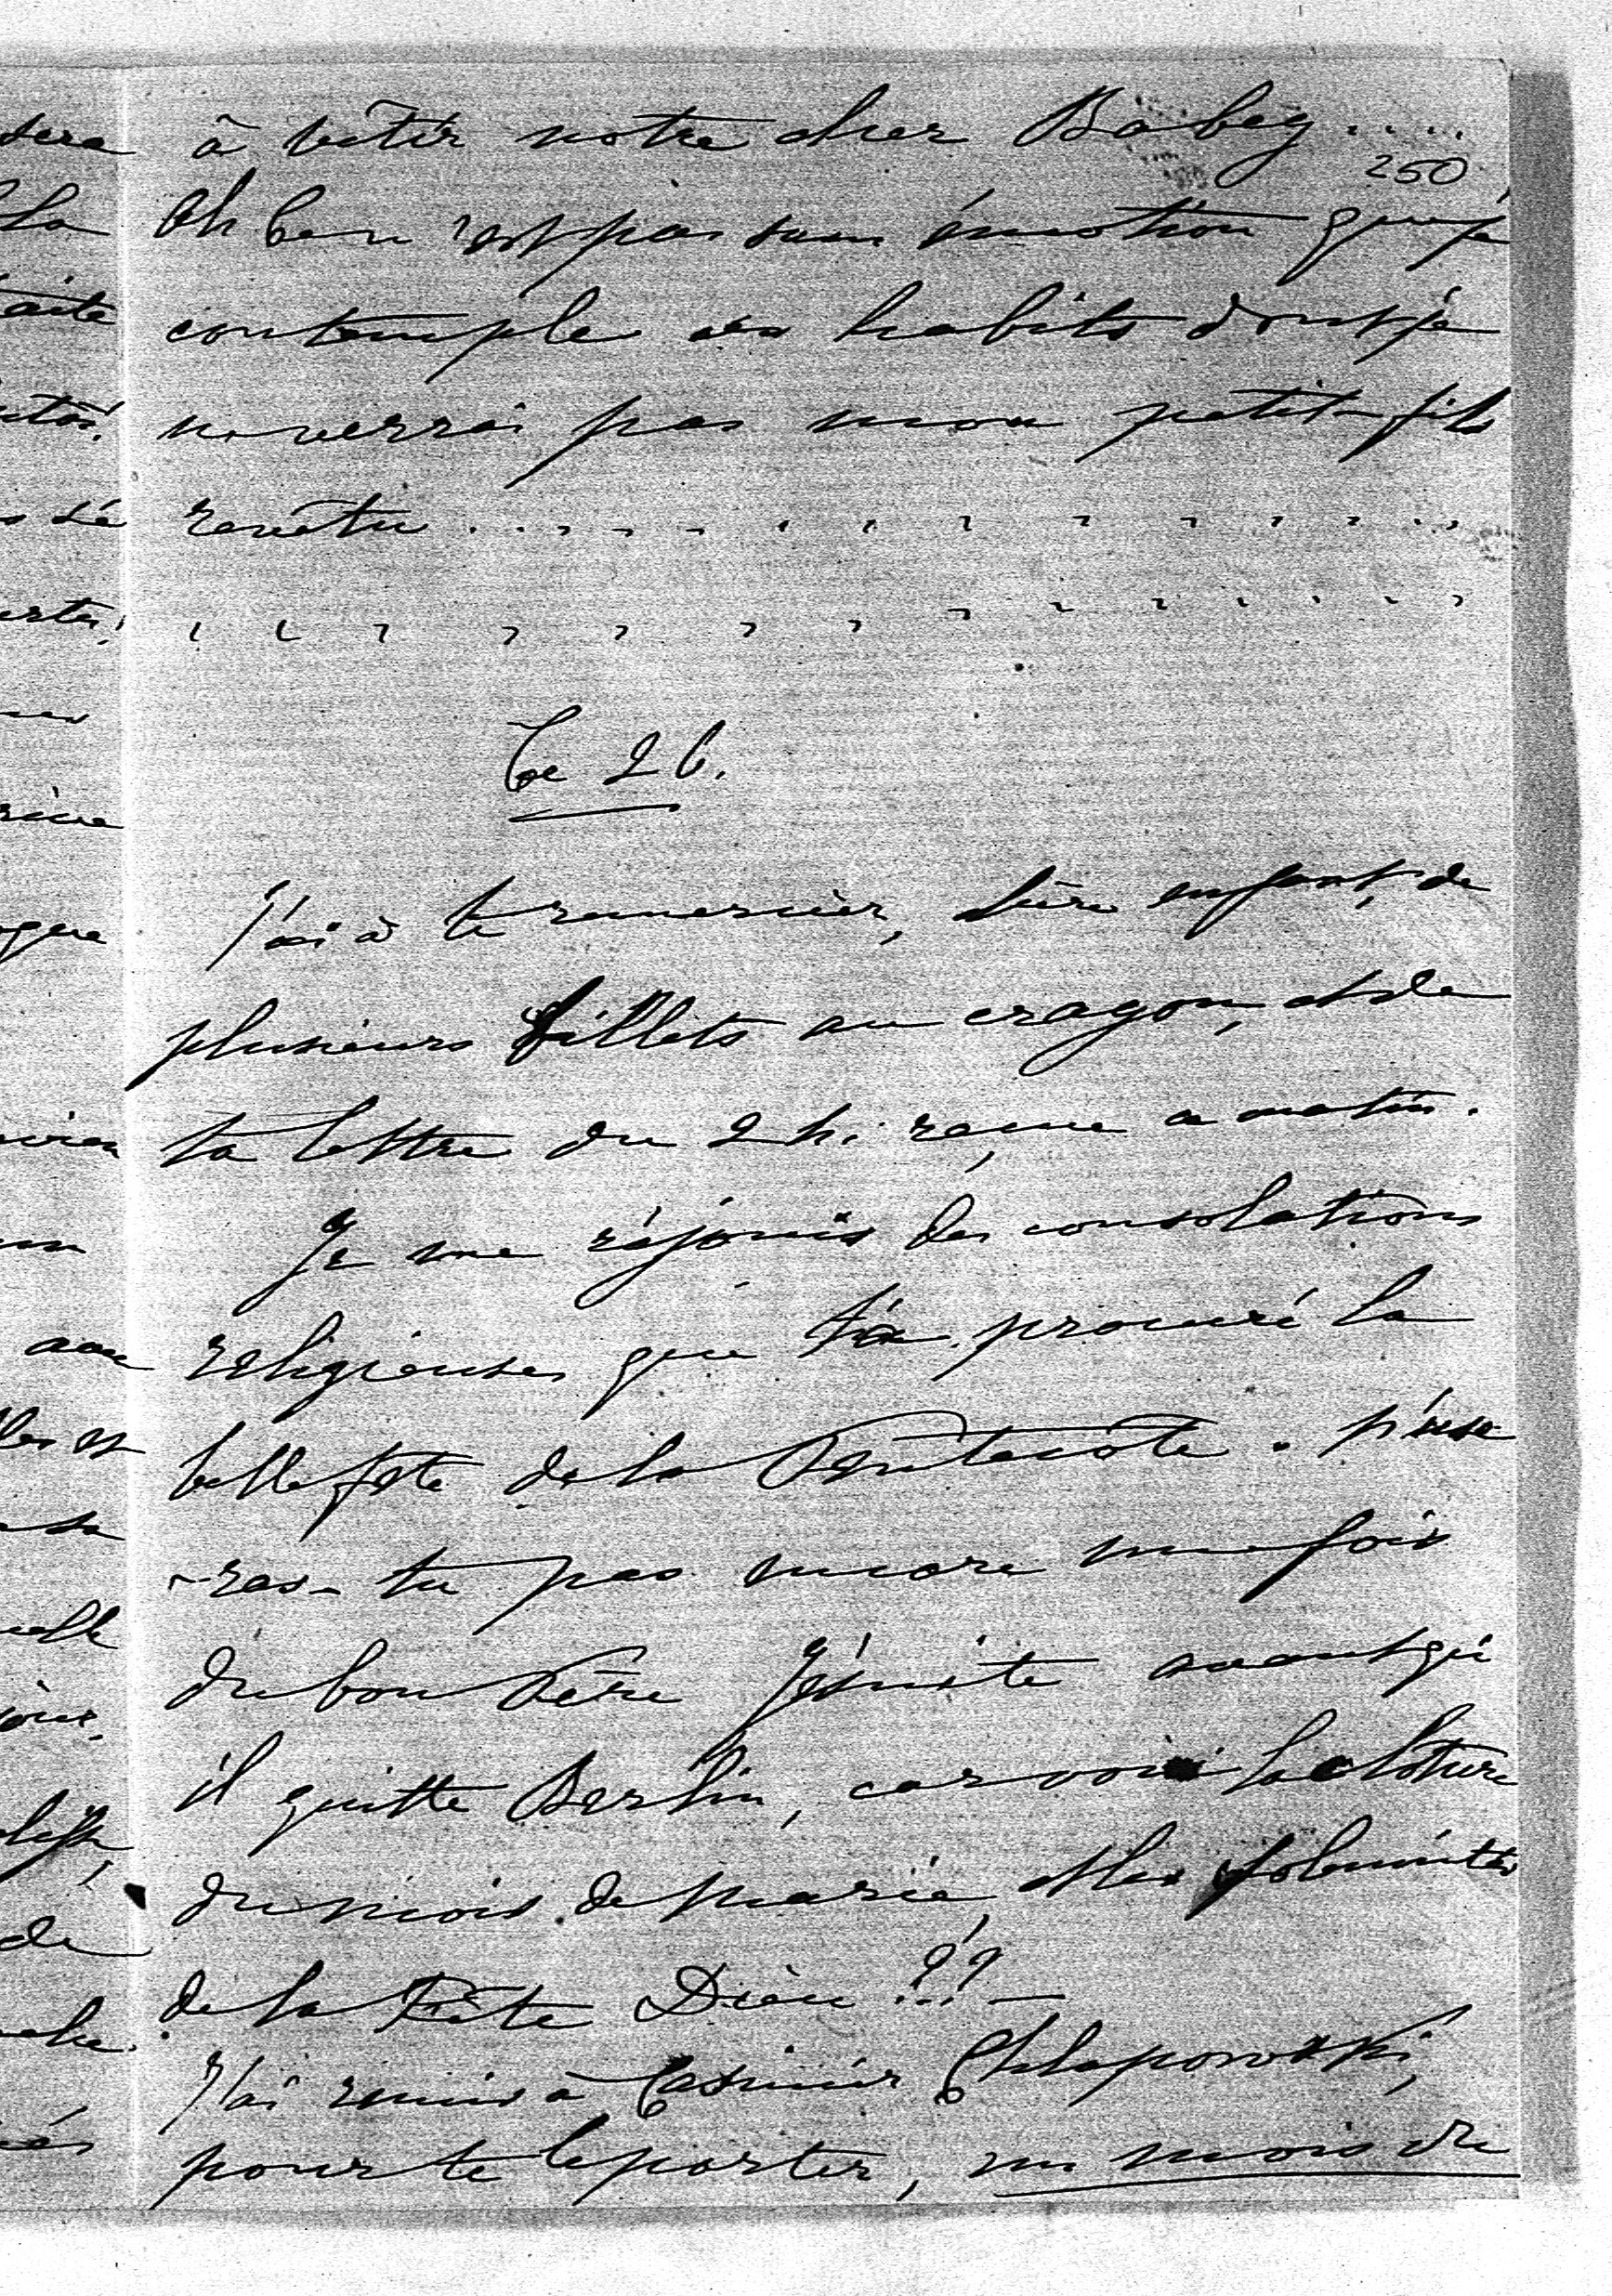 à vêtir notre cher Babey.....
250
Ah ce n'est pas sans émotion que je
contemple ces habits dont je
ne verrai pas mon petit-fils
revêtu . . . . . . . . . . . . . .
. . . . . . . . . . . . . . .
Ce 26.
J'ai à te remercier, chère enfant, de
plusieurs billets au crayon, et de
ta lettre du 24. reçue ce matin.
Je me réjouis des consolations
religieuses que t'a procuré la
belle fête de la Pentecôte. N'use
-ras-tu pas encore une fois
du bon Père Jésuite avant qu'
il quitte Berlin, car voici la clôture
du mois de Marie, et les solemnités
de la Fête Dieu ?!? —
J'ai remis à Casimir Chlapowski,
pour te le porter, un mois du